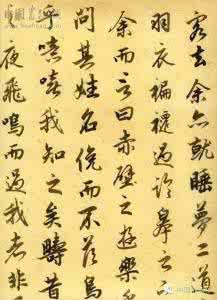 客去余亦就睡夢二道
羽衣蹁躚過臨皋之
余而言曰赤壁之遊樂
問其姓名俛而不答烏
乎噫嘻我知之矣疇昔
夜飛鳴而過我者非